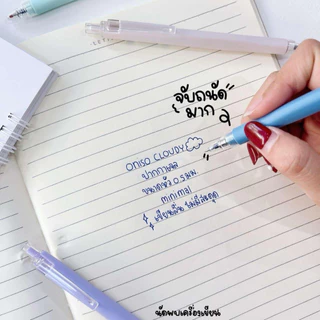 จับถนัด
มาก
ONISO CLOUDY
ปากกาเจล
ขนาดหัว 0.5 มม
minimal
เขียนลื่น ไม่มีสะดุด
นัดพบเครื่องเขียน